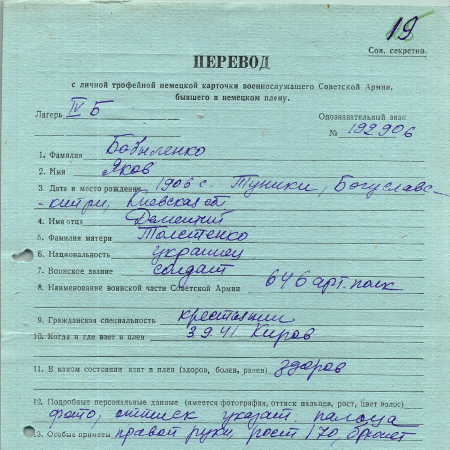 19
Сов. секретно.
ПЕРЕВОД
с личной трофейной немецкой карточки военнослужащего Советской Армии,
бывшего в немецком плену.
Лагерь IV Б
Опознавательный знак
№ 192906
1. Фамилия Бобыленко
2. Имя Яков
3. Дата и место рождения 1906 г. Туники, Богуславс-
-кий р-н, Киевская обл
4. Имя отца Дементий
5. Фамилия матери Толстенко
6. Национальность украинец
7. Воинское звание солдат
8. Наименование воинской части Советской Армии 646 арт. полк
9. Гражданская специальность крестьянин
10. Когда и где взят в плен 3 9.41 Киров
11. В каком состоянии взят в плен (здоров, болен, ранен) здоров
12. Подробные персональные данные (имеется фотография, оттиск пальцев, рост, цвет волос)
фото, оттиск указат. пальца
13. Особые приметы правой руки, рост 170, брюнет